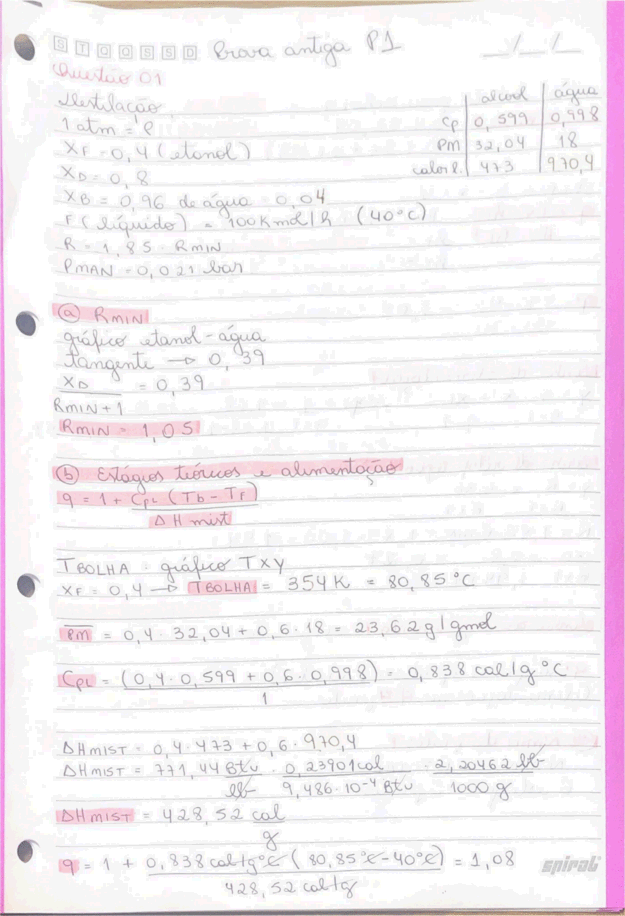 S T Q Q S S D Prova antiga P1 __/__/__
Questão 01
Destilação
1 atm = P
XF = 0,4 (etanol)
XD = 0,8
XB = 0,96 de água = 0,04
F (líquido) = 100 Kmol/h (40°C)
R = 1,85 · RMIN
PMAN = 0,021 bar
álcool água
Cp 0,599 0,998
PM 32,04 18
calor l. 473 970,4
a) RMIN
gráfico etanol-água
tangente → 0,39
XD = 0,39
RMIN + 1
RMIN = 1,05
b) Estágios teóricos e alimentação
q = 1 + CPL (Tb - TF)
ΔH mist
TBOLHA : gráfico TXY
XF = 0,4 → TBOLHA = 354K = 80,85°C
PM = 0,4 · 32,04 + 0,6 · 18 = 23,62 g/gmol
CPL = (0,4 · 0,599 + 0,6 · 0,998) = 0,838 cal/g°C
1
ΔHMIST = 0,4 · 473 + 0,6 · 970,4
ΔHMIST = 771,44 Btu · 0,23901 cal · 2,20462 lb
lb 9,486·10⁻⁴ Btu 1000 g
ΔHMIST = 428,52 cal
g
q = 1 + 0,838 cal/g°C (80,85°C - 40°C) = 1,08
428,52 cal/g
spiral